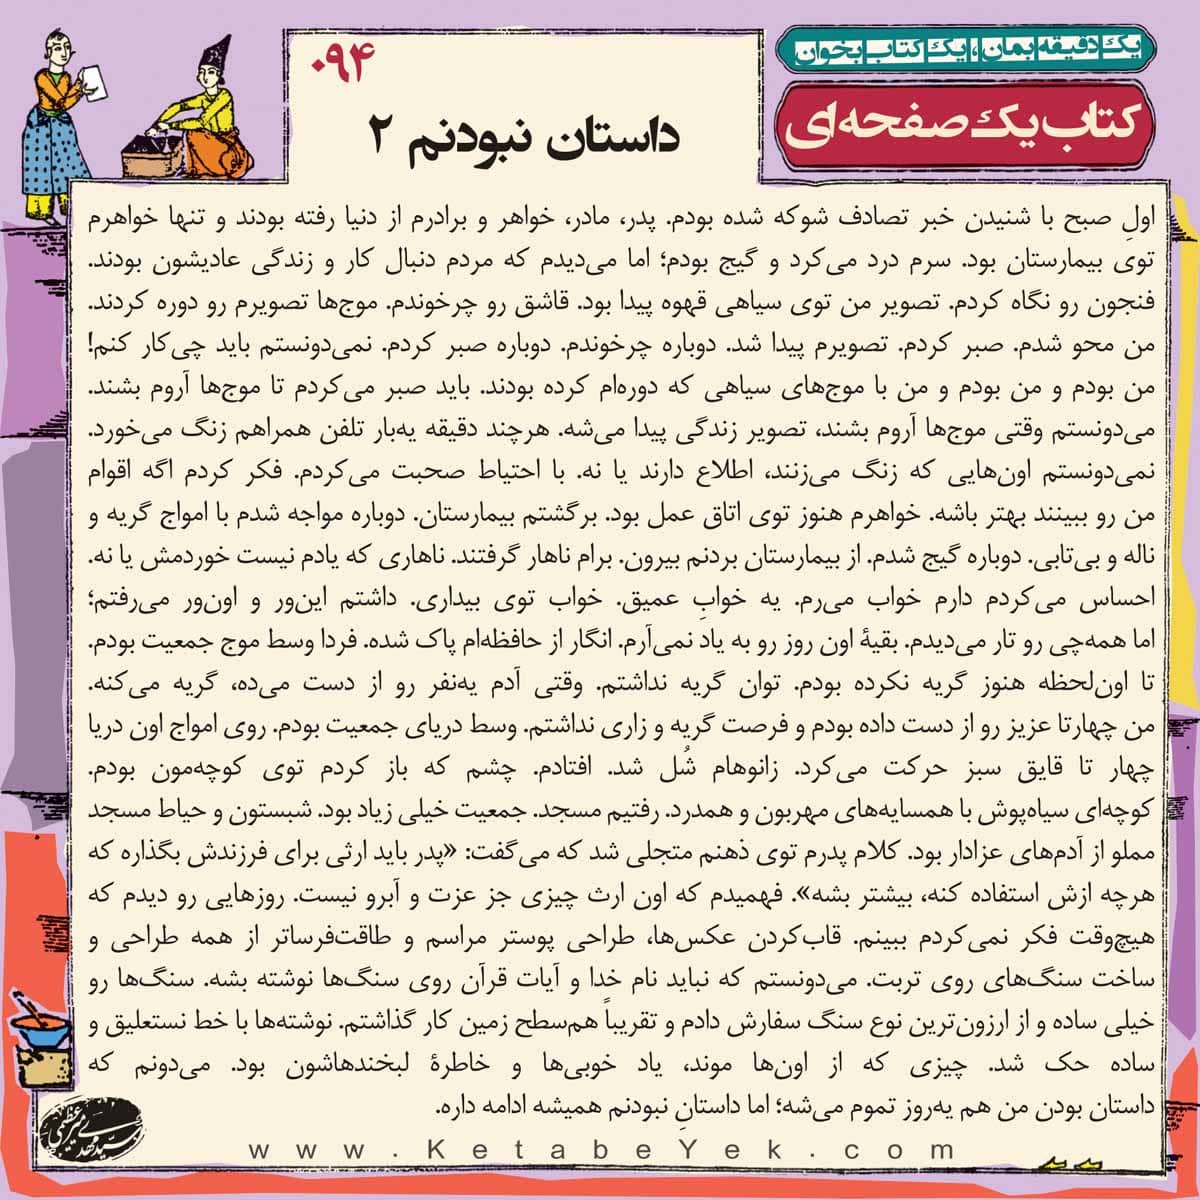 یک دقیقه بمان، یک کتاب بخوان
کتاب یک صفحه‌ای
۰۹۴
داستان نبودنم ۲
اولِ صبح با شنیدن خبر تصادف شوکه شده بودم. پدر، مادر، خواهر و برادرم از دنیا رفته بودند و تنها خواهرم
توی بیمارستان بود. سرم درد می‌کرد و گیج بودم؛ اما می‌دیدم که مردم دنبال کار و زندگی عادیشون بودند.
فنجون رو نگاه کردم. تصویر من توی سیاهی قهوه پیدا بود. قاشق رو چرخوندم. موج‌ها تصویرم رو دوره کردند.
من محو شدم. صبر کردم. تصویرم پیدا شد. دوباره چرخوندم. دوباره صبر کردم. نمی‌دونستم باید چی‌کار کنم!
من بودم و من بودم و من با موج‌های سیاهی که دوره‌ام کرده بودند. باید صبر می‌کردم تا موج‌ها آروم بشند.
می‌دونستم وقتی موج‌ها آروم بشند، تصویر زندگی پیدا می‌شه. هرچند دقیقه یه‌بار تلفن همراهم زنگ می‌خورد.
نمی‌دونستم اون‌هایی که زنگ می‌زنند، اطلاع دارند یا نه. با احتیاط صحبت می‌کردم. فکر کردم اگه اقوام
من رو ببینند بهتر باشه. خواهرم هنوز توی اتاق عمل بود. برگشتم بیمارستان. دوباره مواجه شدم با امواج گریه و
ناله و بی‌تابی. دوباره گیج شدم. از بیمارستان بردنم بیرون. برام ناهار گرفتند. ناهاری که یادم نیست خوردمش یا نه.
احساس می‌کردم دارم خواب می‌رم. یه خوابِ عمیق. خواب توی بیداری. داشتم این‌ور و اون‌ور می‌رفتم؛
اما همه‌چی رو تار می‌دیدم. بقیهٔ اون روز رو به یاد نمی‌آرم. انگار از حافظه‌ام پاک شده. فردا وسط موج جمعیت بودم.
تا اون‌لحظه هنوز گریه نکرده بودم. توان گریه نداشتم. وقتی آدم یه‌نفر رو از دست می‌ده، گریه می‌کنه.
من چهارتا عزیز رو از دست داده بودم و فرصت گریه و زاری نداشتم. وسط دریای جمعیت بودم. روی امواج اون دریا
چهار تا قایق سبز حرکت می‌کرد. زانوهام شُل شد. افتادم. چشم که باز کردم توی کوچه‌مون بودم.
کوچه‌ای سیاه‌پوش با همسایه‌های مهربون و همدرد. رفتیم مسجد. جمعیت خیلی زیاد بود. شبستون و حیاط مسجد
مملو از آدم‌های عزادار بود. کلام پدرم توی ذهنم متجلی شد که می‌گفت: «پدر باید ارثی برای فرزندش بگذاره که
هرچه ازش استفاده کنه، بیشتر بشه». فهمیدم که اون ارث چیزی جز عزت و آبرو نیست. روزهایی رو دیدم که
هیچ‌وقت فکر نمی‌کردم ببینم. قاب‌کردن عکس‌ها، طراحی پوستر مراسم و طاقت‌فرساتر از همه طراحی و
ساخت سنگ‌های روی تربت. می‌دونستم که نباید نام خدا و آیات قرآن روی سنگ‌ها نوشته بشه. سنگ‌ها رو
خیلی ساده و از ارزون‌ترین نوع سنگ سفارش دادم و تقریباً هم‌سطح زمین کار گذاشتم. نوشته‌ها با خط نستعلیق و
ساده حک شد. چیزی که از اون‌ها موند، یاد خوبی‌ها و خاطرهٔ لبخندهاشون بود. می‌دونم که
داستان بودن من هم یه‌روز تموم می‌شه؛ اما داستانِ نبودنم همیشه ادامه داره.
www.KetabeYek.com